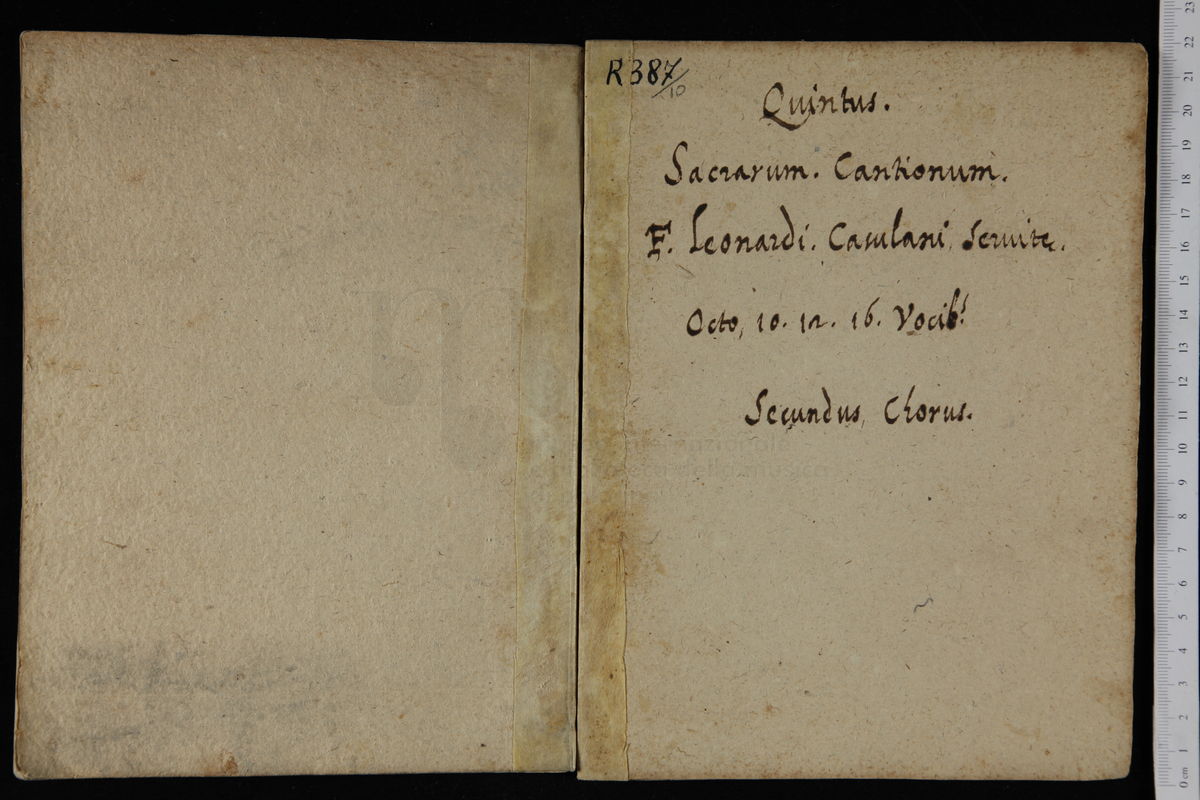 R 387/10
Quintus.
Sacrarum. Cantionum.
F. Leonardi. Casulani Servite.
Octo, 10. 12. 16. Vocib.s
Secundus, Chorus.
museo internazionale
e biblioteca della musica
0 cm 1 2 3 4 5 6 7 8 9 10 11 12 13 14 15 16 17 18 19 20 21 22 23